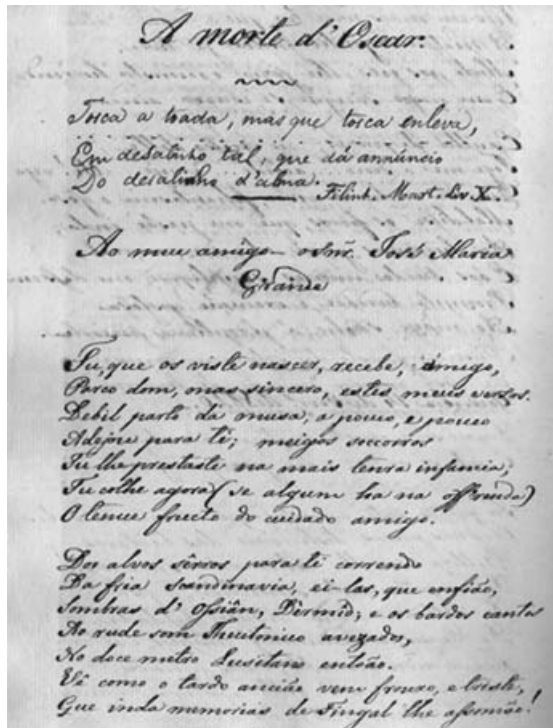 A morte d'Oscar.
Tosca a toada, mas que tosca enleva,
Em desalinho tal, que dá annúncio
Do desalinho d'alma.
Filint. Mart. Liv. X.
Ao meu amigo o Snr. José Maria
Grande
Tu, que os viste nascer, recebe, amigo,
Parco dom, mas sincero, estes meus versos.
Debil parto da musa, a pouco, e pouco
Adejou para ti; meigos soccorros
Tu lhe prestaste na mais tenra infancia;
Tu colhe agora (se algum ha na offrenda)
O tenue fructo do cuidado amigo.
Dos alvos sêrros para ti correndo
Da fria scandinavia, ei-las, que enfião,
Sombras d'Ossiân, Dèrmid; e os bardos cantos
Ao rude som Theutonico avezados,
No doce metro Lusitano entoão.
Vê como o tardo ancião vem frouxo, e triste,
Que inda memorias de Fingal lhe aformão!